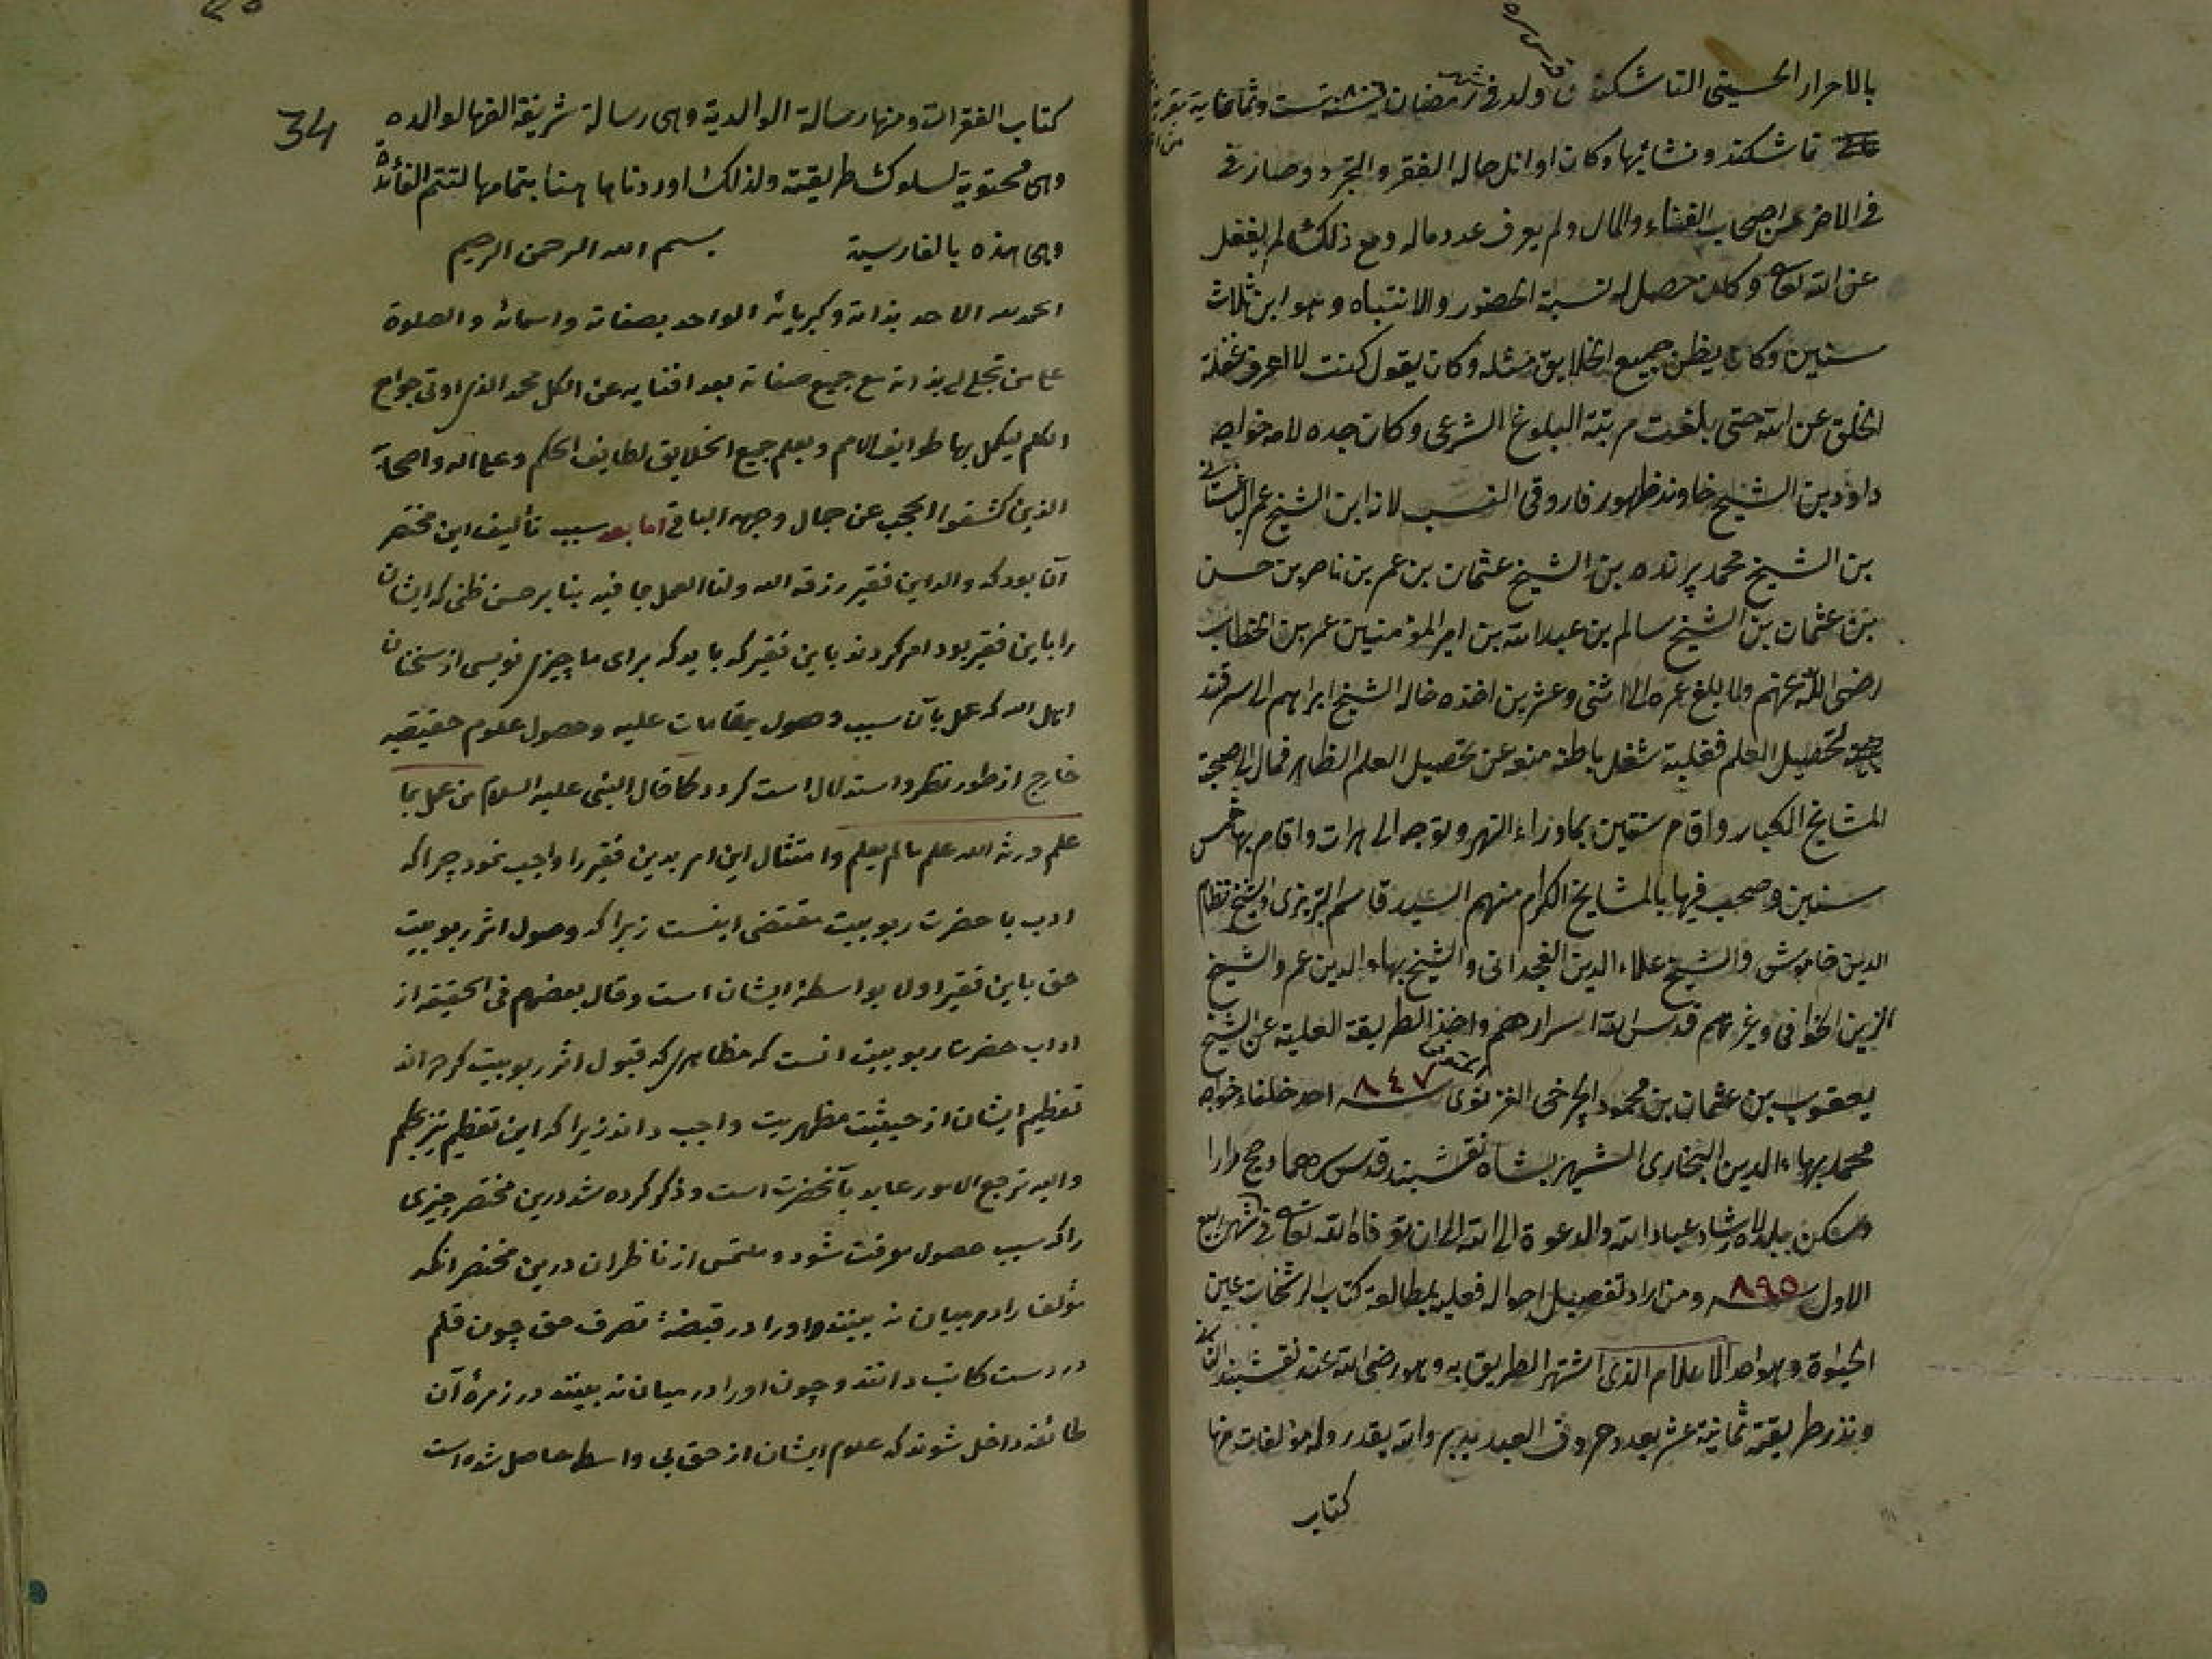 بالاحرار الحسيني التاشكندي ولد في شهر رمضان سنة ٨٠٦ ست وثمانماية
تاشكند ونشأ بها وكان اوائل حاله الفقر والتجرد وصار في
في الاخر من اصحاب الغناء والمال ولم يعرف عدد ماله ومع ذلك لم يغفل
عن الله تعالى وكان حصل له نسبة الحضور والانتباه وهو ابن ثلاث
سنين وكان يظن جميع الخلايق مثله وكان يقول كنت لا اعرف غفلة
الخلق عن الله حتى بلغت مرتبة البلوغ الشرعي وكان جده لامه خواجه
داود بن الشيخ خاوند طهور فاروقي النسب لانه ابن الشيخ عمر الباغستاني
بن الشيخ محمد پرانده بن الشيخ عثمان بن عمر بن ناصر بن حسن
بن عثمان بن الشيخ سالم بن عبد الله بن امير المؤمنين عمر بن الخطاب
رضي الله عنهم ولما بلغ عمره الى اثنى وعشرين اخذه خاله الشيخ ابراهيم الى سمرقند
لتحصيل العلم فغلبة شغل باطنه منعه عن تحصيل العلم الظاهر فمال الى صحبة
المشايخ الكبار واقام سنتين بماوراء النهر وتوجه الى هرات واقام بها خمس
سنين وصحب فيها بالمشايخ الكرام منهم السيد قاسم التبريزي والشيخ نظام
الدين خاموش والشيخ علاء الدين الغجدواني والشيخ بهاء الدين عمر والشيخ
الزين الخوافي وغيرهم قدس الله اسرارهم واخذ الطريقة العلية عن الشيخ
يعقوب بن عثمان بن محمود الچرخي الغزنوي المتوفى سنه ٨٤٧ احد خلفاء خواجه
محمد بهاء الدين البخاري الشهير بشاه نقشبند قدس سرهما وحج مرارا
وسكن ببلده لارشاد عباد الله والدعوة الى الله الى ان توفاه الله تعالى في شهر ربيع
الاول سنه ٨٩٥ ومن اراد تفصيل احواله فعليه بمطالعة كتاب الرشحات عين
الحيوة وهو احد الاعلام الذي اشتهر الطريق به وهو رضي الله عنه نقشبند الثاني
طريقته ثمانية عشر بعدد حروف العبد يدبر والله يقدر وله مؤلفات منها
كتاب
34
كتاب الفقرات ومنها رسالة الوالدية وهى رسالة شريفة الفها لوالده
وهى محتوية لسلوك طريقته ولذلك اوردناها هنا بتمامها لتتم الفائدة
وهى هذه بالفارسية بسم الله الرحمن الرحيم
الحمد لله الاحد بذاته وكبريائه الواحد بصفاته واسمائه والصلوة
على من تجلى له بذاته مع جميع صفاته بعد افنايه عن الكل محمد الذي اوتي جوامع
الكلم ليكمل بها طوايف الامم ويعلم جميع الخلايق لطايف الحكم وعلى اله واصحابه
الذين كشفوا الحجب عن جمال وجهه الباقي اما بعد سبب تأليف اين مختصر
آن بود كه والد اين فقير رزقه الله ولنا العمل بما فيه بنا بر حسن ظنى كه ايشان
را باين فقير بود امر كردند باين فقير كه بايد كه براى ما چيزى نويسى از سخنان
اهل الله كه عمل بآن سبب وصول بمقامات عليه وحصول علوم حقيقيه
خارج از طور نظر واستدلال است كردد كما قال النبى عليه السلام من عمل بما
علم ورثه الله علم ما لم يعلم وامتثال اين امر بدين فقير را واجب نمود چرا كه
ادب با حضرت ربوبيت مقتضى اينست زيرا كه وصول اثر ربوبيت
حق باين فقير اولا بواسطهٔ ايشان است وقال بعضهم فى الحقيقه از
اداب حضرت ربوبيت انست كه مظاهرى كه قبول اثر ربوبيت كرده اند
تعظيم ايشان از حيثيت مظهريت واجب داند زيرا كه اين تعظيم نيز بحكم
واليه ترجع الامور عايد بآنحضرت است وذكر كرده شد درين مختصر چيزى
را كه سبب حصول معرفت شود وملتمس از ناظران درين مختصر آنكه
مؤلف را در ميان نه بينند واورا در قبضهٔ تصرف حق چون قلم
در دست كاتب دانند وچون اورا در ميان نه بينند در زمرهٔ آن
طائفه داخل شوند كه علوم ايشان از حق بى واسطه حاصل شده است